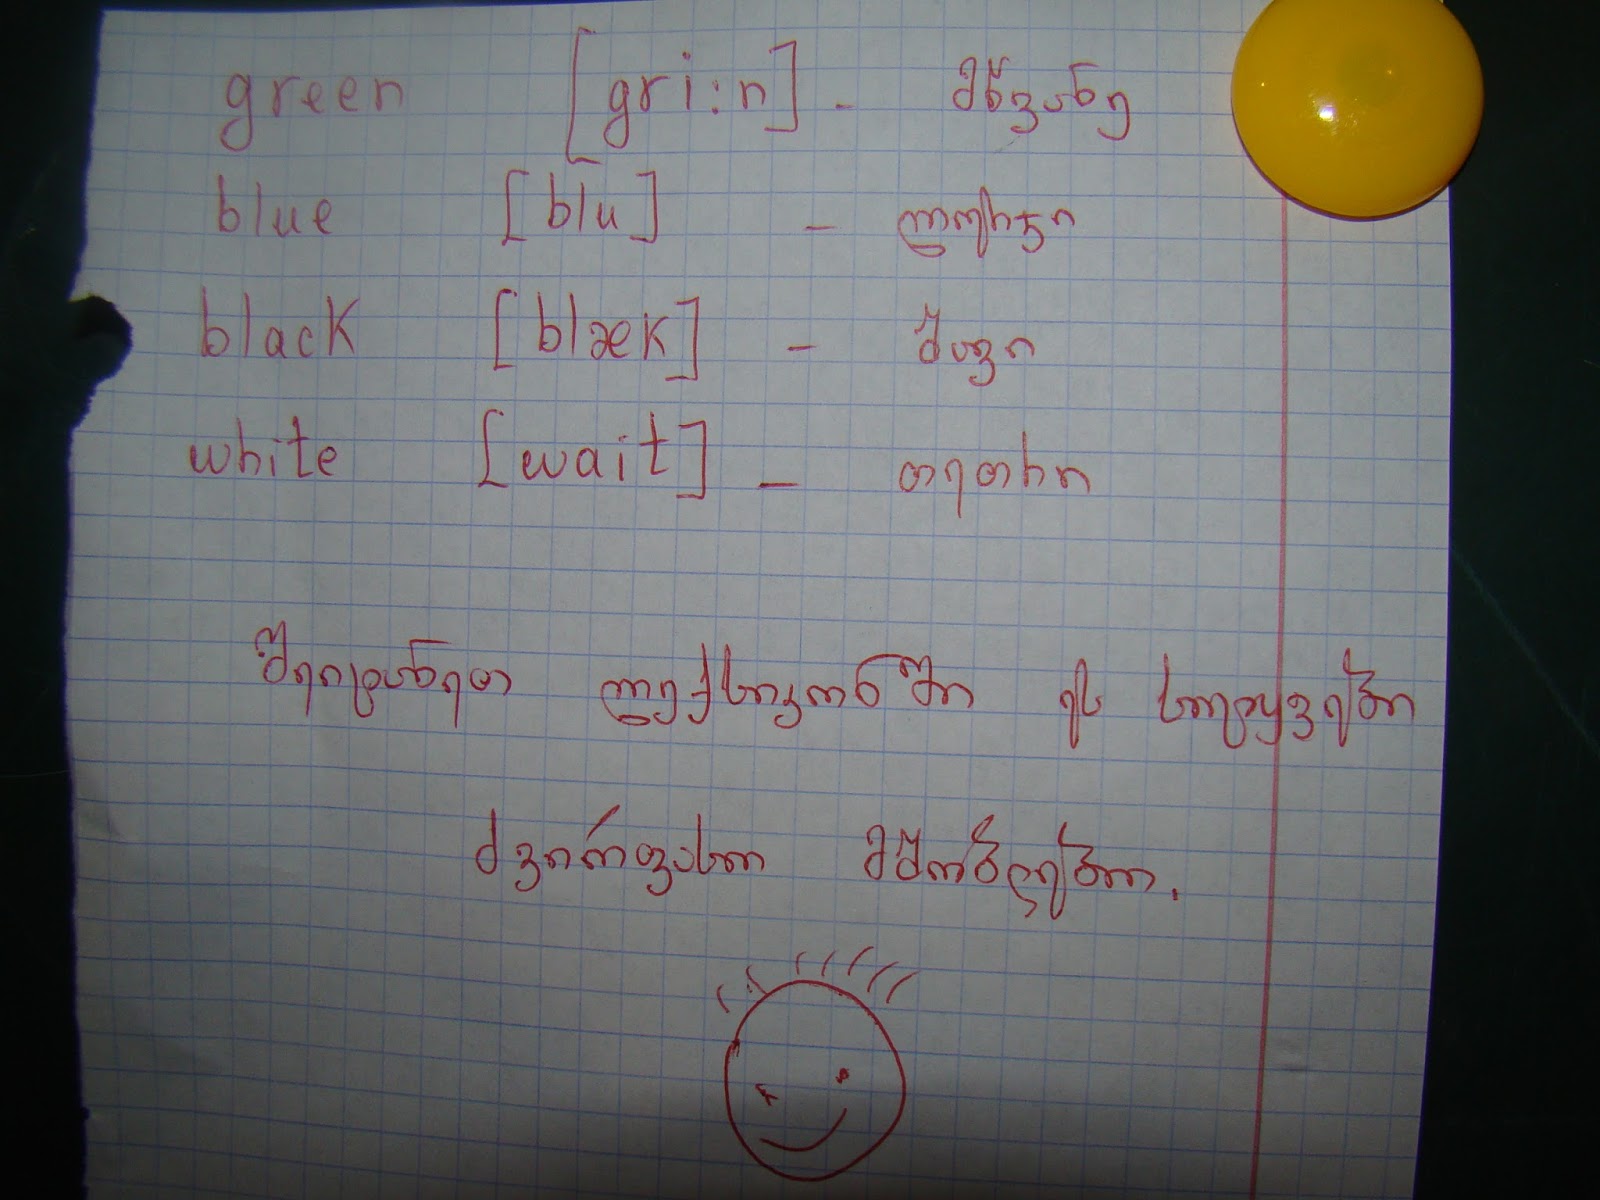 green [gri:n] - მწვანე
blue [blu] - ლურჯი
black [blæk] - შავი
white [wait] - თეთრი
შეიტანეთ ლექსიკონში ეს სიტყვები
ძვირფასო მშობლებო.